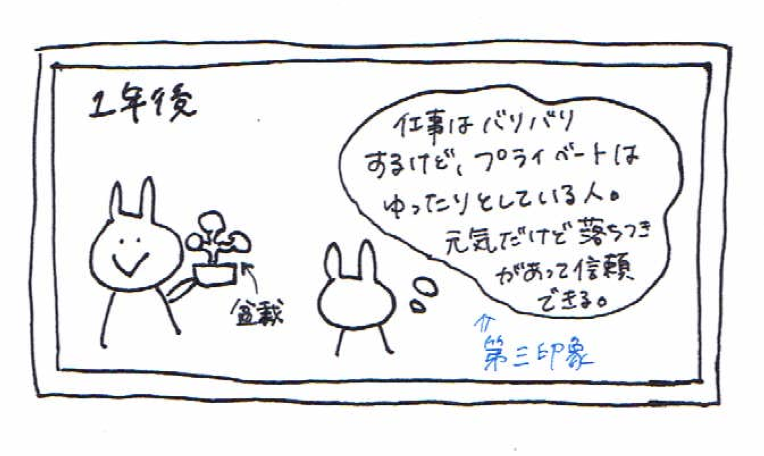 1年後
仕事はバリバリ
するけど、プライベートは
ゆったりとしている人。
元気だけど落ちつき
があって信頼
できる。
盆栽
第三印象